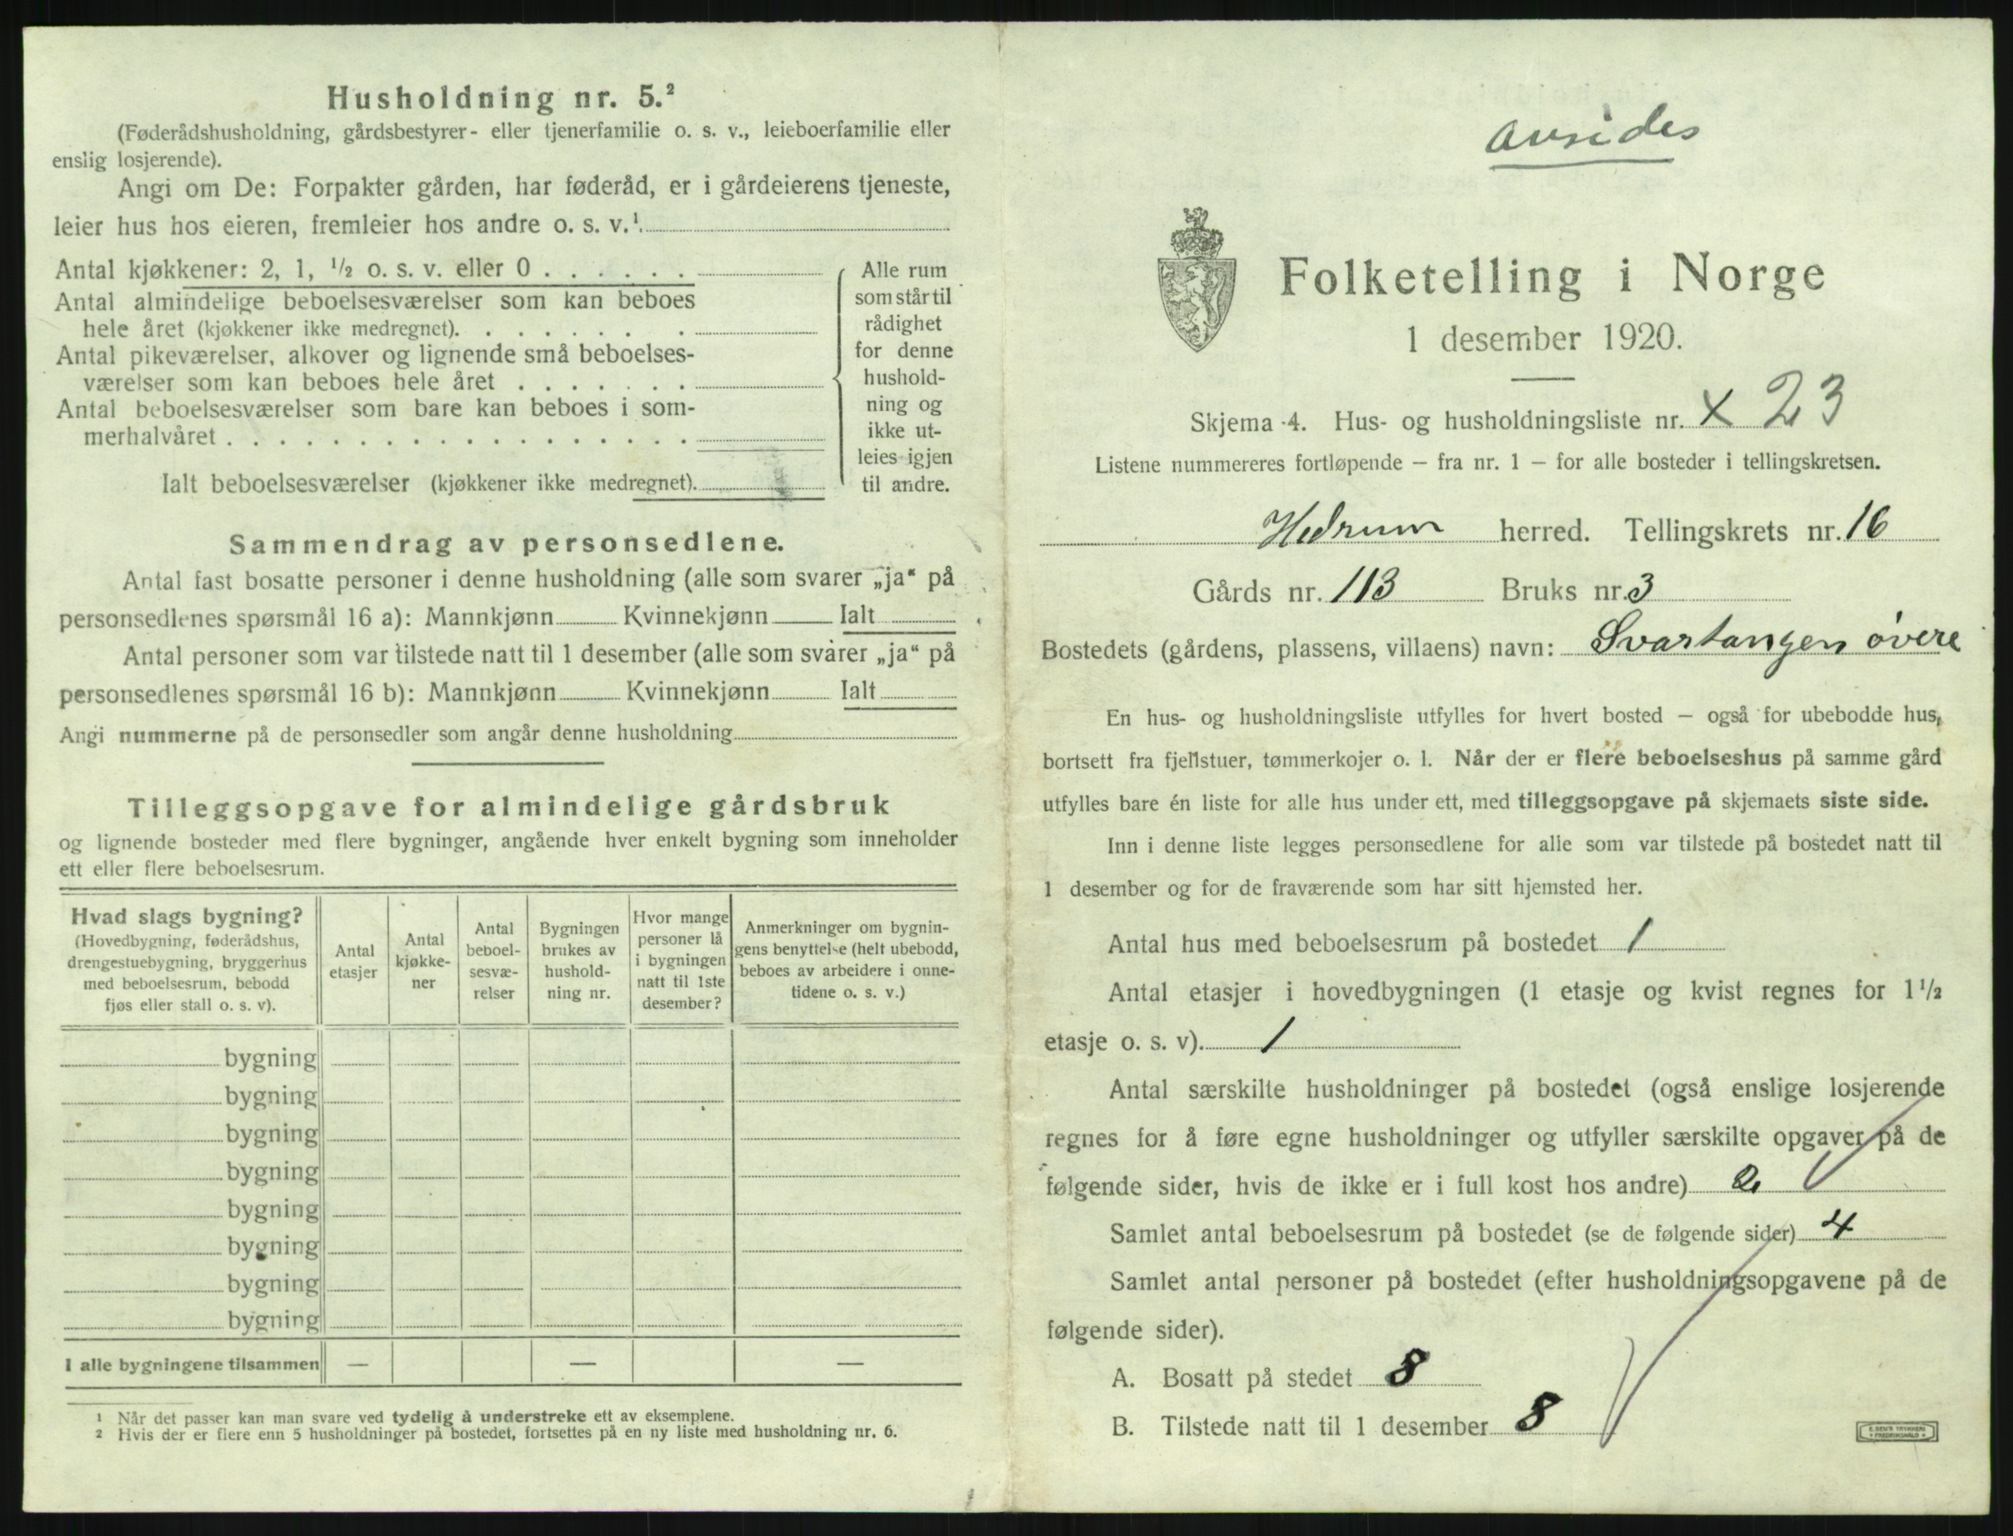 Husholdning nr. 5.²
(Føderådshusholdning, gårdsbestyrer- eller tjenerfamilie o. s. v., leieboerfamilie eller
enslig losjerende).
Angi om De: Forpakter gården, har føderåd, er i gårdeierens tjeneste,
leier hus hos eieren, fremleier hos andre o. s. v.¹.
Antal kjøkkener: 2, 1, ½ o. s. v. eller 0 . . . . . .
Antal almindelige beboelsesværelser som kan beboes
hele året (kjøkkener ikke medregnet). . . . . . . .
Antal pikeværelser, alkover og lignende små beboelses-
værelser som kan beboes hele året . . . . . . .
Antal beboelsesværelser som bare kan beboes i som-
merhalvåret . . . . . . . . . . . . . . . . . .
Ialt beboelsesværelser (kjøkkener ikke medregnet).
Alle rum
som står til
rådighet
for denne
hushold-
ning og
ikke ut-
leies igjen
til andre.
Sammendrag av personsedlene.
Antal fast bosatte personer i denne husholdning (alle som svarer „ja“ på
personsedlenes spørsmål 16 a): Mannkjønn Kvinnekjønn Ialt
Antal personer som var tilstede natt til 1 desember (alle som svarer „ja“ på
personsedlenes spørsmål 16 b): Mannkjønn Kvinnekjønn Ialt
Angi nummerne på de personsedler som angår denne husholdning
Tilleggsopgave for almindelige gårdsbruk
og lignende bosteder med flere bygninger, angående hver enkelt bygning som inneholder
ett eller flere beboelsesrum.
Hvad slags bygning?
(Hovedbygning, føderådshus,
drengestuebygning, bryggerhus
med beboelsesrum, bebodd
fjøs eller stall o. s. v).
Antal
etasjer
Antal
kjøkke-
ner
Antal
beboel-
sesvæ-
relser
Bygningen
brukes av
hushold-
ning nr.
Hvor mange
personer lå
i bygningen
natt til 1ste
desember?
Anmerkninger om bygnin-
gens benyttelse (helt ubebodd,
beboes av arbeidere i onne-
tidene o. s. v.)
bygning
bygning
bygning
bygning
bygning
bygning
bygning
bygning
I alle bygningene tilsammen — — —
¹ Når det passer kan man svare ved tydelig å understreke ett av eksemplene.
² Hvis der er flere enn 5 husholdninger på bostedet, fortsettes på en ny liste med husholdning nr. 6.
Avsides
Folketelling i Norge
1 desember 1920.
Skjema 4. Hus- og husholdningsliste nr. x 23
Listene nummereres fortløpende — fra nr. 1 — for alle bosteder i tellingskretsen.
Hedrum herred. Tellingskrets nr. 16
Gårds nr. 113 Bruks nr. 3
Bostedets (gårdens, plassens, villaens) navn: Svartangen øvere
En hus- og husholdningsliste utfylles for hvert bosted — også for ubebodde hus,
bortsett fra fjellstuer, tømmerkojer o. l. Når der er flere beboelseshus på samme gård
utfylles bare én liste for alle hus under ett, med tilleggsopgave på skjemaets siste side.
Inn i denne liste legges personsedlene for alle som var tilstede på bostedet natt til
1 desember og for de fraværende som har sitt hjemsted her.
Antal hus med beboelsesrum på bostedet 1
Antal etasjer i hovedbygningen (1 etasje og kvist regnes for 1½
etasje o. s. v). 1
Antal særskilte husholdninger på bostedet (også enslige losjerende
regnes for å føre egne husholdninger og utfyller særskilte opgaver på de
følgende sider, hvis de ikke er i full kost hos andre) 2
Samlet antal beboelsesrum på bostedet (se de følgende sider) 4
Samlet antal personer på bostedet (efter husholdningsopgavene på de
følgende sider).
A. Bosatt på stedet 8
B. Tilstede natt til 1 desember 8